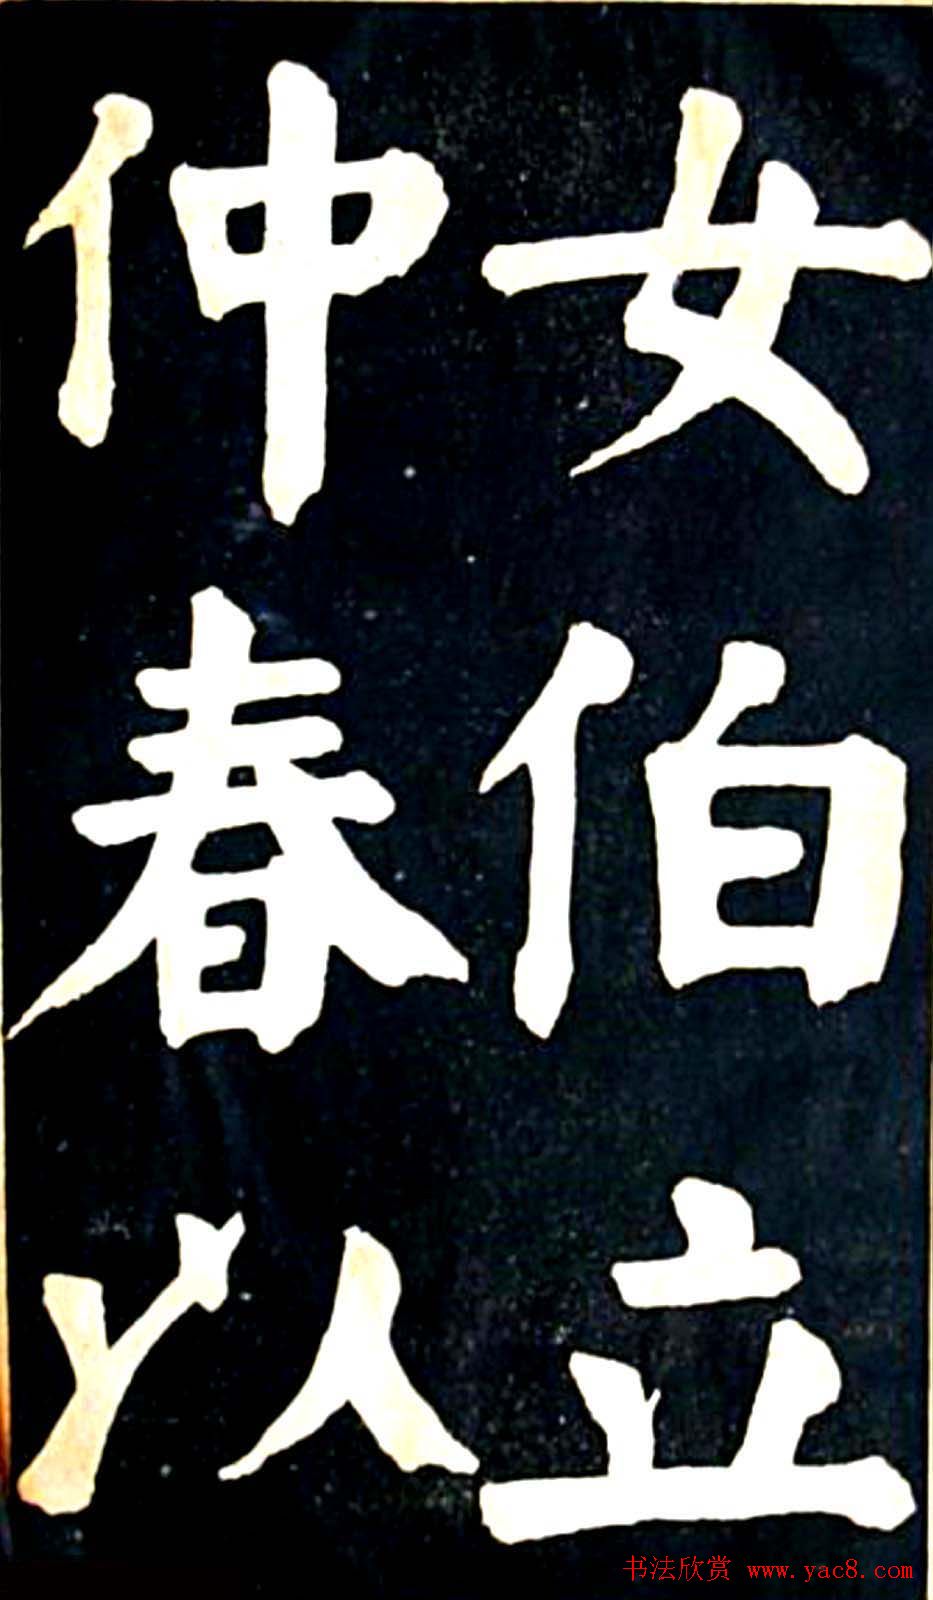 女伯立
仲春以
书法欣赏 www.yac8.com